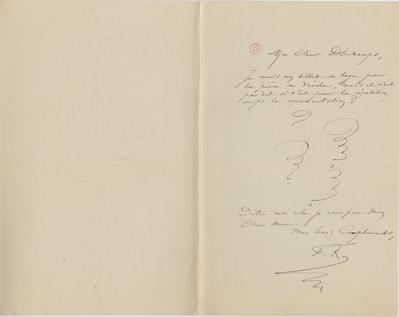 Mon Cher Deschamps,
Je reçois un billet de loge pour
la pièce de
pas dit si c'est pour la répétition
ou pour la représentation ?
?
?
Dites moi cela je vous prie Mon
Cher Ami,
Mes bons Compliments,
F. R.